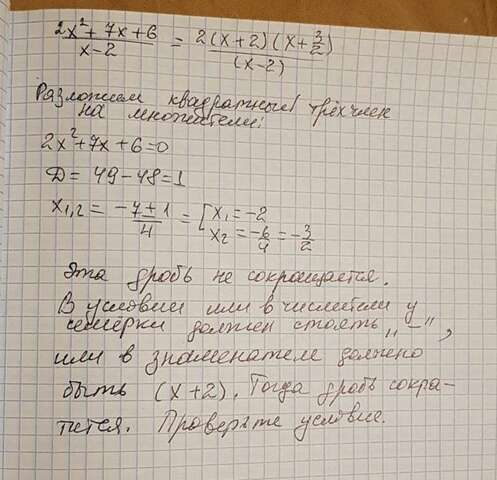 2x² + 7x + 6 / x - 2 = 2(x + 2)(x + 3/2) / (x - 2)
Разложим квадратный трёхчлен
на множители:
2x² + 7x + 6 = 0
D = 49 - 48 = 1
x₁,₂ = -7 ± 1 / 4 = [ x₁ = -2
x₂ = -6/4 = -3/2
Эта дробь не сокращается.
В условии или в числителе у
семёрки должен стоять „-",
или в знаменателе должно
быть (x + 2). Тогда дробь сокра-
тится. Проверьте условие.